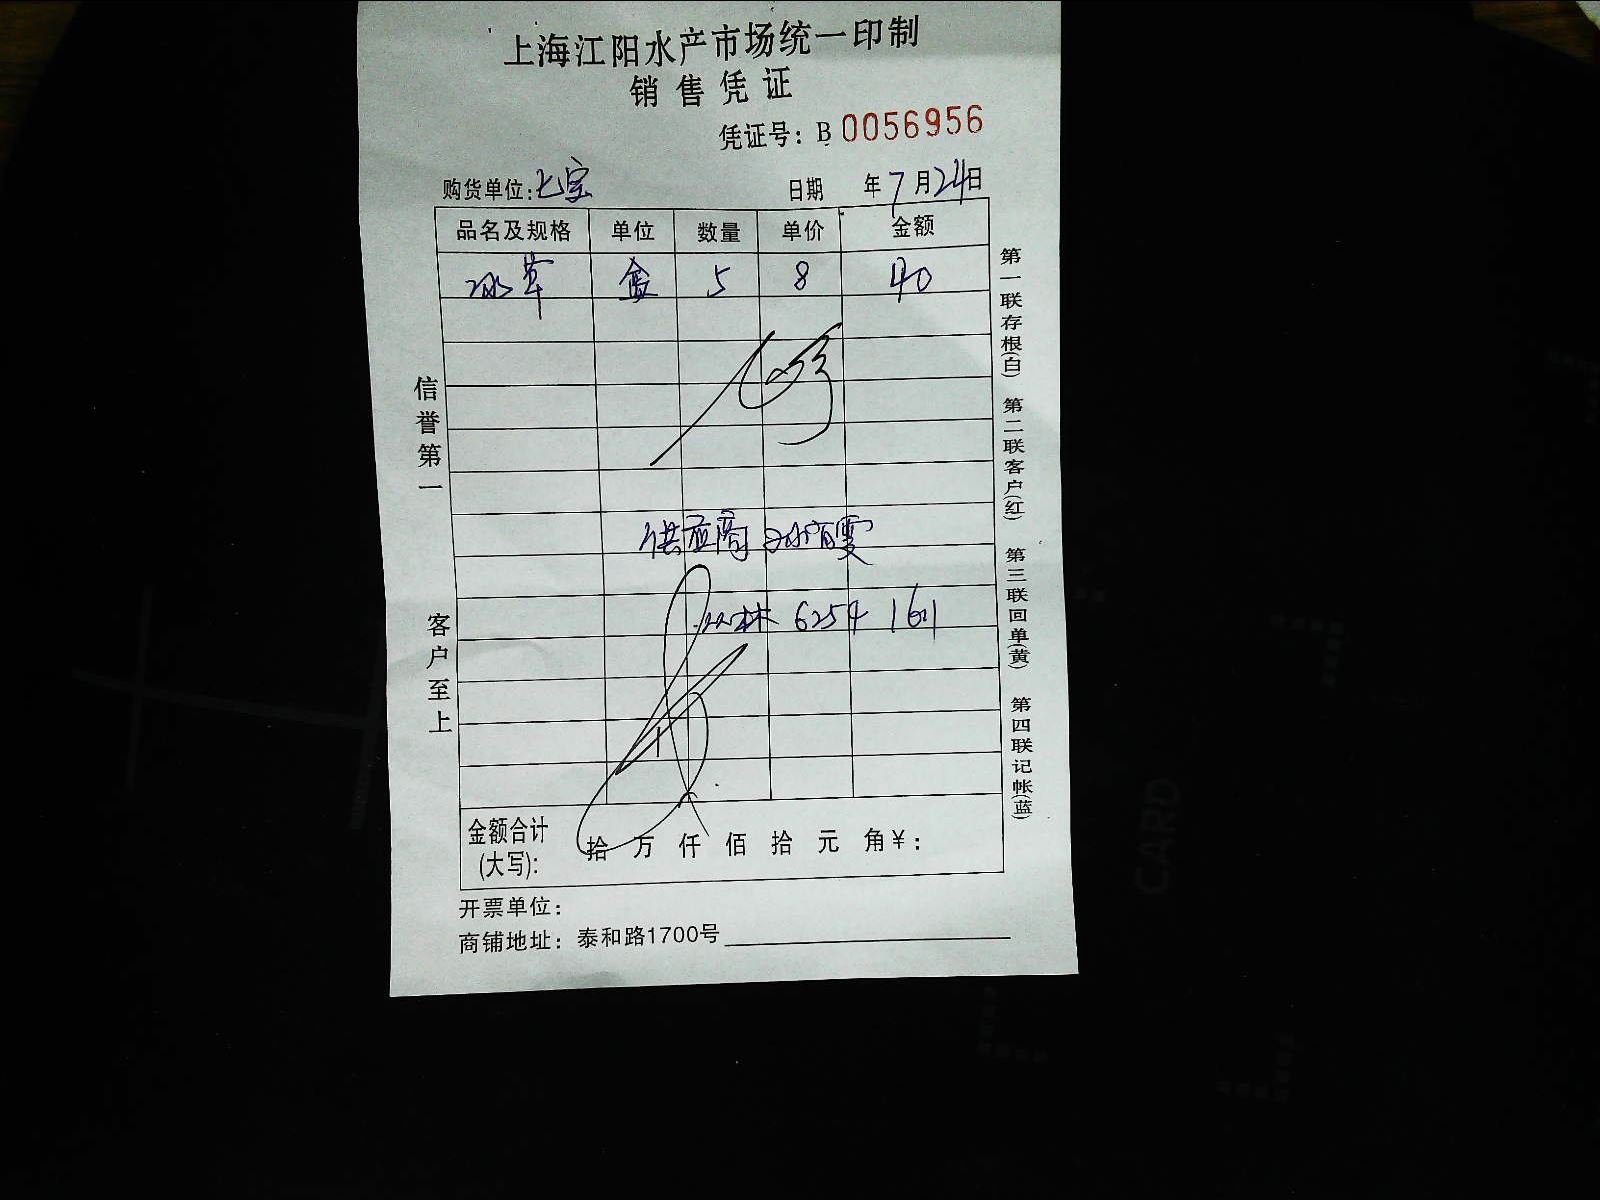 上海江阳水产市场统一印制
销售凭证
凭证号：B 0056956
购货单位：七宝 日期 年7月24日
品名及规格 单位 数量 单价 金额
冰草 盒 5 8 40
供应商
林 6254 1611
金额合计 拾 万 仟 佰 拾 元 角¥：
(大写)：
开票单位：
商铺地址：泰和路1700号
信誉第一 客户至上
第一联存根(白) 第二联客户(红) 第三联回单(黄) 第四联记帐(蓝)
CARD